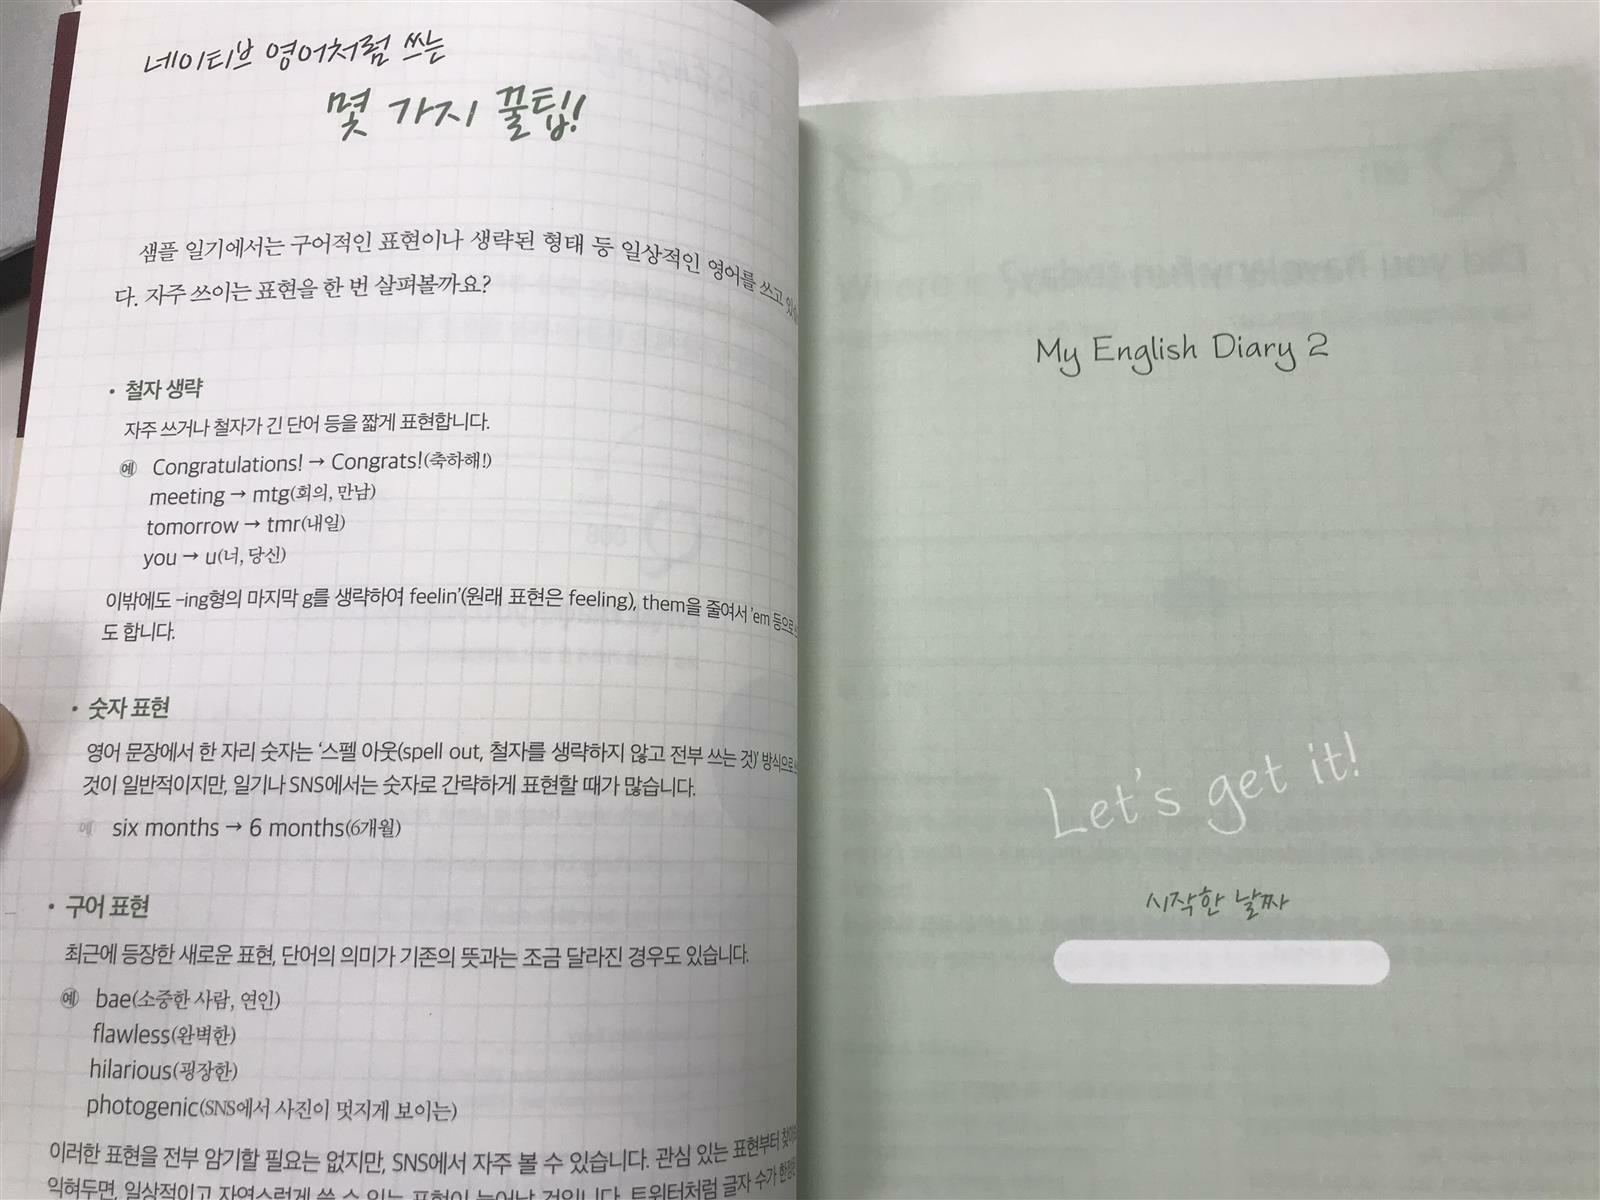 네이티브 영어처럼 쓰는
몇 가지 꿀팁!
샘플 일기에서는 구어적인 표현이나 생략된 형태 등 일상적인 영어를 쓰고
다. 자주 쓰이는 표현을 한 번 살펴볼까요?
• 철자 생략
자주 쓰거나 철자가 긴 단어 등을 짧게 표현합니다.
예 Congratulations! → Congrats!(축하해!)
meeting → mtg(회의, 만남)
tomorrow → tmr(내일)
you → u(너, 당신)
이밖에도 –ing형의 마지막 g를 생략하여 feelin'(원래 표현은 feeling), them을 줄여서 'em 등으로
도 합니다.
• 숫자 표현
영어 문장에서 한 자리 숫자는 '스펠 아웃(spell out, 철자를 생략하지 않고 전부 쓰는 것)' 방식으로
것이 일반적이지만, 일기나 SNS에서는 숫자로 간략하게 표현할 때가 많습니다.
예 six months → 6 months(6개월)
• 구어 표현
최근에 등장한 새로운 표현, 단어의 의미가 기존의 뜻과는 조금 달라진 경우도 있습니다.
예 bae(소중한 사람, 연인)
flawless(완벽한)
hilarious(굉장한)
photogenic(SNS에서 사진이 멋지게 보이는)
이러한 표현을 전부 암기할 필요는 없지만, SNS에서 자주 볼 수 있습니다. 관심 있는 표현부터
익혀두면, 일상적이고 자연스럽게 쓸 수 있는 표현이 늘어날 것입니다. 트위터처럼 글자 수가
My English Diary 2
Let's get it!
시작한 날짜